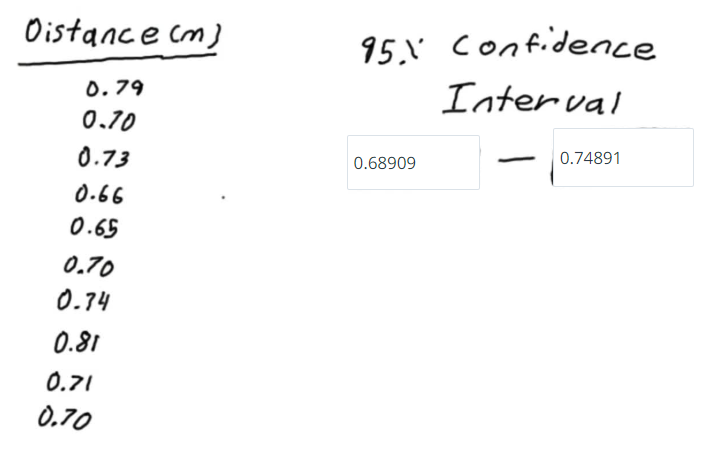 Distance (m)
0.79
0.70
0.73
0.66
0.65
0.70
0.74
0.81
0.71
0.70
95% Confidence
Interval
0.68909 — 0.74891